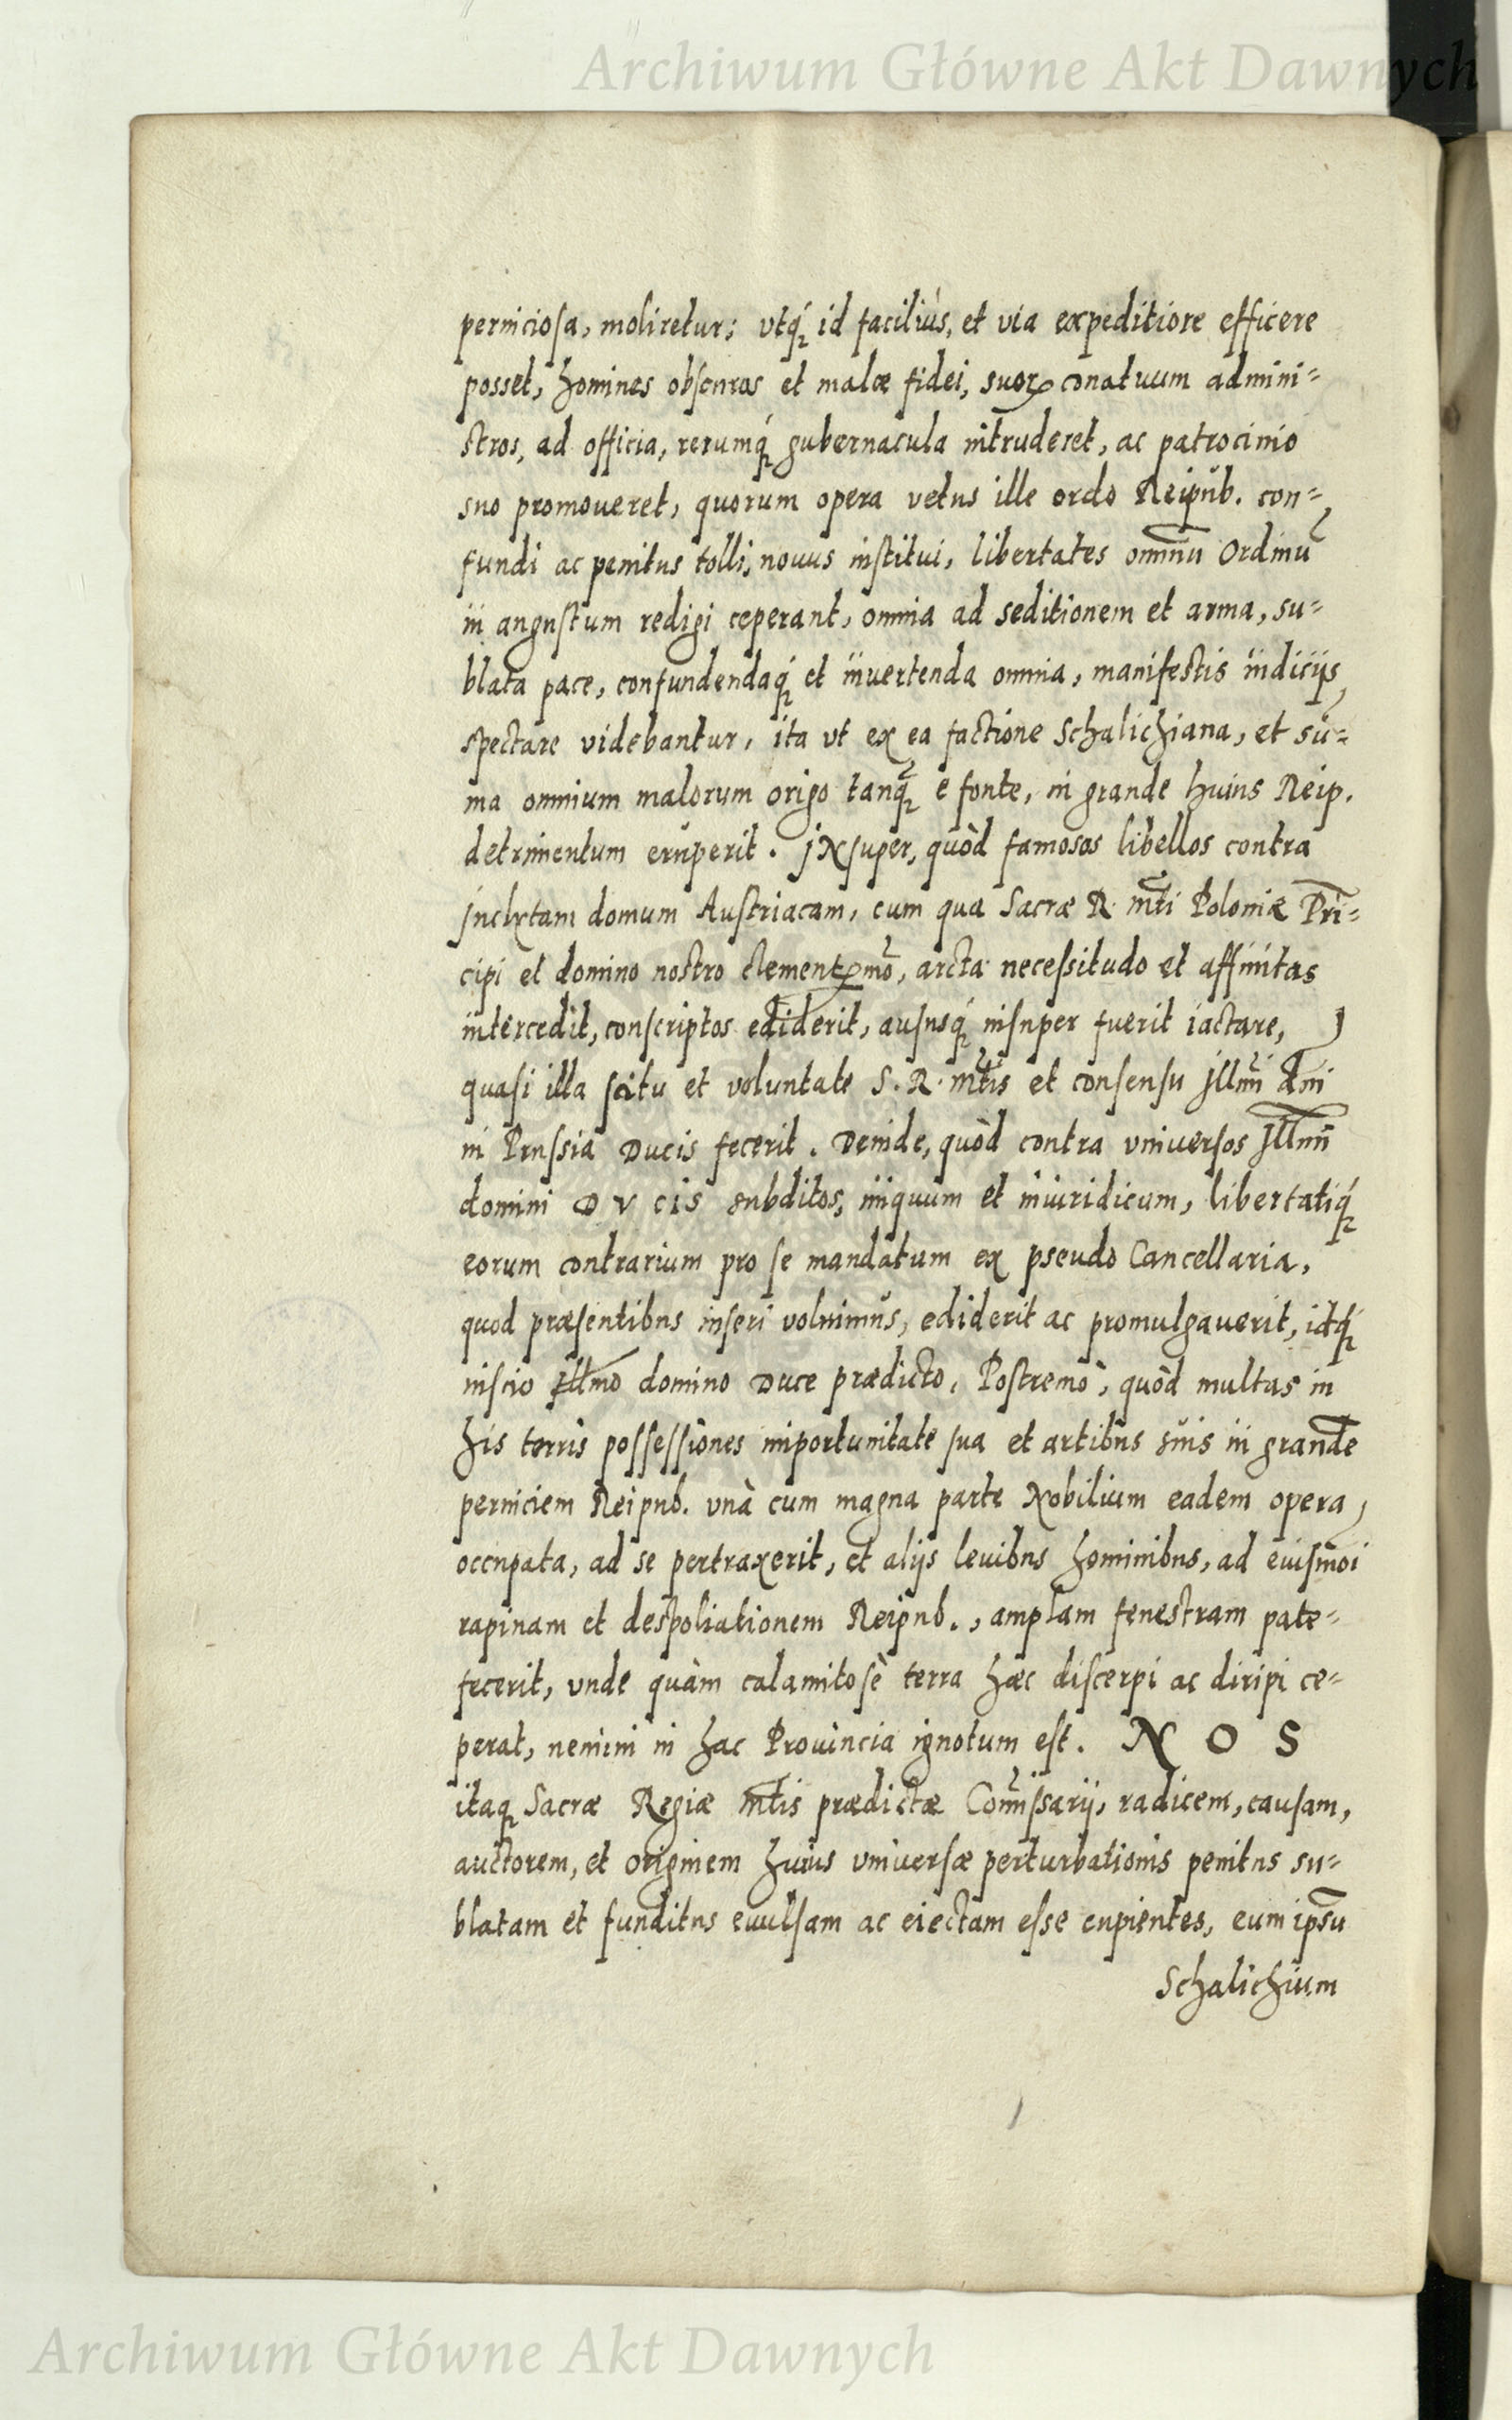 Archiwum Główne Akt Dawnych
perniciosa, moliretur; vtq́ꝫ id faciliùs, et via expeditiore efficere
posset, homines obscuros et malæ fidei, suoꝝ conatuum admini=
stros, ad officia, rerumq́ꝫ gubernacula intruderet, ac patrocinio
suo promoueret, quorum opera vetus ille ordo Reipub. con=
fundi ac penitus tolli, nouus institui, libertates omniũ Ordinũ
in angustum redigi ceperant, omnia ad seditionem et arma, su=
blata pace, confundendaq́ꝫ et inuertenda omnia, manifestis indicijs
spectare videbantur, ita vt ex ea factione Schalichiana, et sũ=
ma omnium malorum origo tanq̃ꝫ e fonte, in grande huius Reip.
detrimentum eruperit. JNsuper, quòd famosos libellos contra
Jnclytam domum Austriacam, cum qua Sacræ R. mti̅ Poloniæ Pri̅=
cipi et domino nostro clementꝫmo, arcta necessitudo et affinitas
intercedit, conscriptos ediderit, aususq́ꝫ insuper fuerit iactare,
quasi illa scitu et voluntate S. R. mti̅s et consensu Jllmi̅ dni̅
in Prussia Ducis fecerit. Deinde, quòd contra vniuersos Jllmi̅
domini DVCIS subditos, iniquum et iniuridicum, libertatiq́ꝫ
eorum contrarium pro se mandatum ex pseudo Cancellaria,
quod præsentibus inseri voluimus, ediderit ac promulgauerit, idq́ꝫ
inscio Jllmo domino Duce prædicto. Postremò, quòd multas in
his terris possessiones importunitate sua et artibus suis in grande
perniciem Reipub. vnà cum magna parte Nobilium eadem opera
occupata, ad se pertraxerit, et alijs leuibus hominibus, ad euismo̅i
rapinam et despoliationem Reipub., amplam fenestram pate=
fecerit, vnde quàm calamitosè terra hæc discerpi ac diripi ce=
perat, nemini in hac Prouincia ignotum est. NOS
itaqꝫ Sacræ Regiæ mti̅s prædictæ Com̅issarij, radicem, causam,
auctorem, et originem huius vniuersæ perturbationis penitus su=
blatam et funditus euulsam ac eiectam esse cupientes, eum ipsũ
Schalichium
Archiwum Główne Akt Dawnych